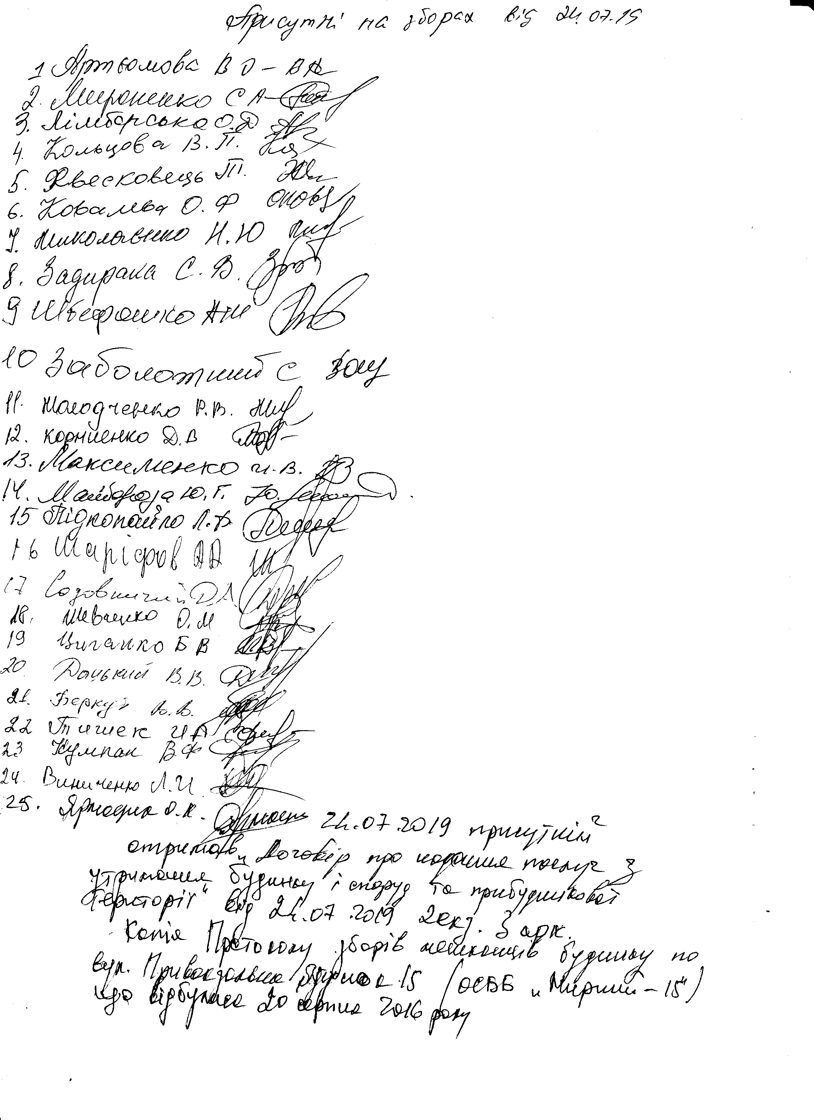 Присутні на зборах від 24.07.19
1 Артьомова В О - 
2. Мироненко С А
3. Лімборська О.Д
4. Кольцова В. П.
5. Квесковець Т.
6. Ковалева О. Ф
7. Миколаенко Н. Ю
8. Задирака С. В.
9
10 Заболотний С
11. Молодченко Р.В.
12. Корниенко Д.В
13. Максименко И. В.
14. Майборода Ю. Г.
15 Підкопайло Л.Ф
16 Шаріфров АА
17 Садовничий Д.А.
18. Шевченко О.М
19 Циганко Б В
20 Доцький В.В.
21. Беркут В.
22 Тишек И А
23 Кумпан В Ф
24. Виниченко Л.И
25. О.К. 24.07.2019 присутні
отримав „Договір про надання послуг з
утримання будинку і споруд та прибудинкової
території“ від 24.07.2019 2екз. 3 арк.
Копія Протоколу зборів мешканців будинку по
вул. Привокзальна будинок 15 (ОСББ „Мирний-15“)
що відбулися 20 серпня 2016 року